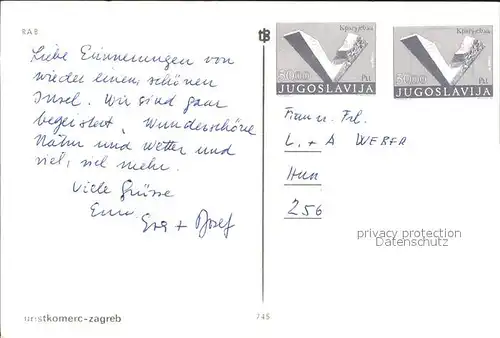 RAB
Liebe Erinnerungen von
wieder einer schönen
Insel. Wir sind ganz
begeistert. Wunderschöne
Natur und Wetter und
viel, viel mehr.
Viele Grüsse
Eure
Eva + Josef
Крагујевац
5000 Din
JUGOSLAVIJA
Крагујевац
5000 Din
JUGOSLAVIJA
Frau u. Frl.
L. + A WEBER
256
privacy protection
Datenschutz
turistkomerc-zagreb
745